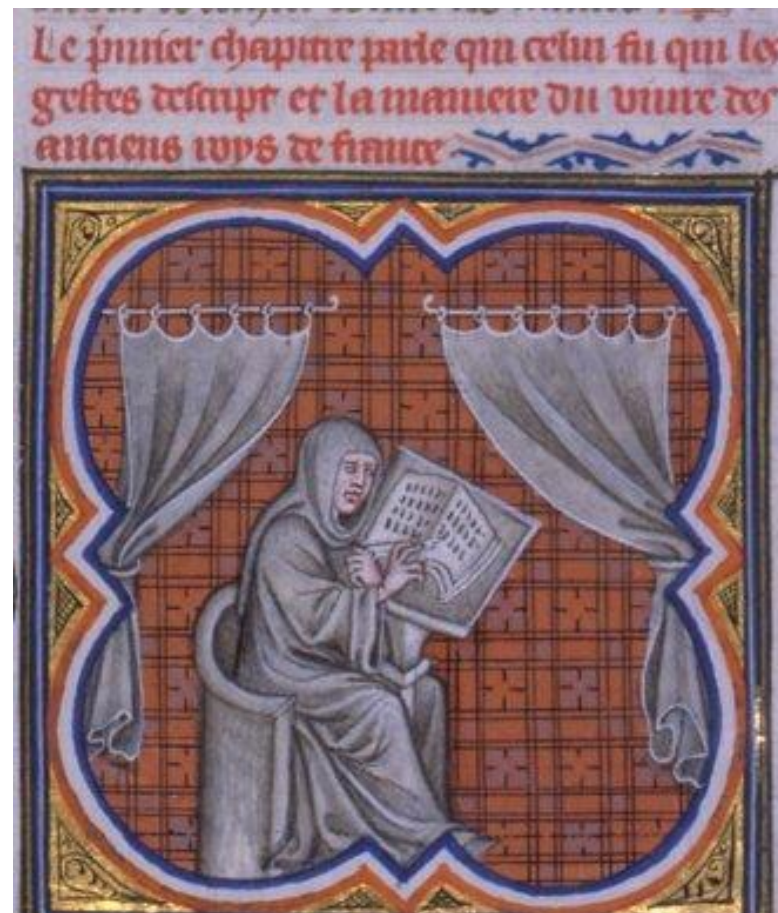 Le p̄mier chapitre parle qui celui fu qui les
gestes descript et la maniere du viure des
anciens roys de france